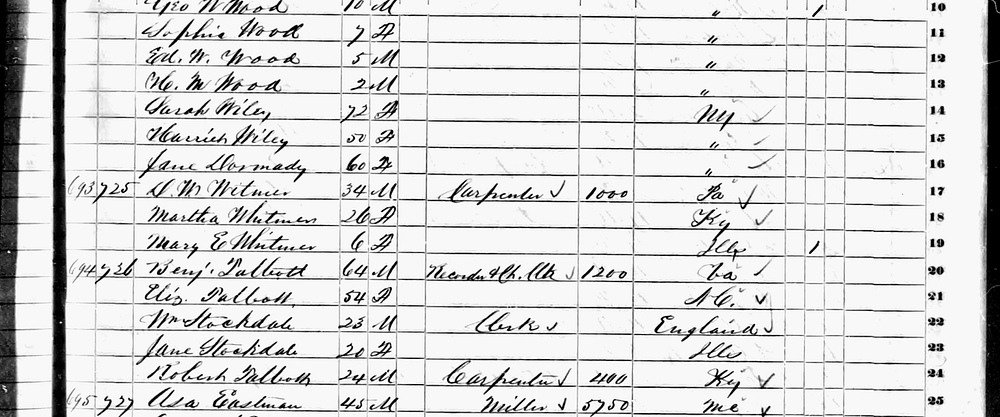 Geo W Wood 10 M " 1 10
Sophia Wood 7 F " 11
Ed. W. Wood 5 M " 12
H. M Wood 2 M " 13
Sarah Wiley 72 F NY 14
Harriet Wiley 50 F " 15
Jane Dormady 60 F " 16
693 725 D. W. Witmer 34 M Carpenter 1000 Pa 17
Martha Whitmer 26 F Ky 18
Mary E Whitmer 6 F Ills 1 19
694 726 Benj. Talbott 64 M Recorder & Ch. Clk 1200 Va 20
Eliz. Talbott 54 F N.C. 21
Wm Stockdale 23 M Clerk England 22
Jane Stockdale 20 F Ills 23
Robert Talbott 24 M Carpenter 400 Ky 24
695 727 Asa Eastman 45 M Miller 5750 Me 25